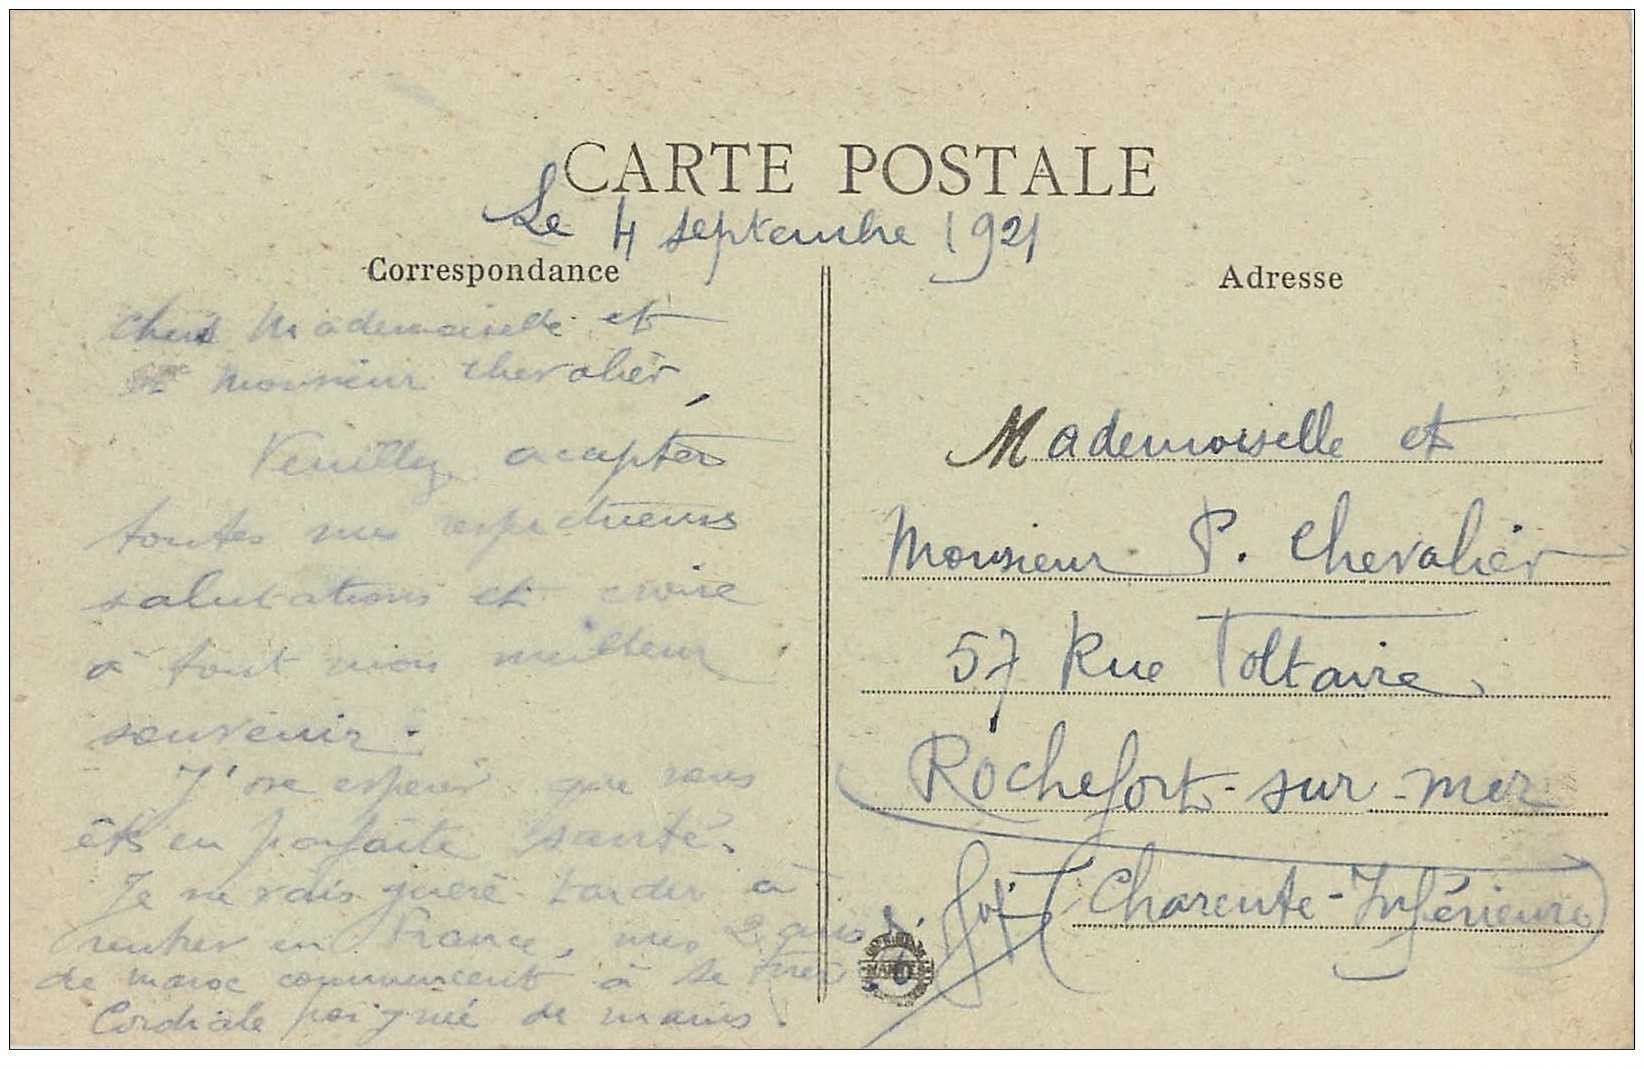 CARTE POSTALE
Le 4 septembre 1921
Correspondance
Adresse
Chers Mademoiselle et
Monsieur Chevalier,
Veuillez accepter
toutes mes respectueuses
salutations et croire
à tout mon meilleur
souvenir.
J'ose espérer que vous
êtes en parfaite santé.
Je ne vais guère tarder à
rentrer en France, mes 2 ans
de maroc commencent à se tirer
Cordiale poignée de mains.
Mademoiselle et
Monsieur P. Chevalier
57 Rue Voltaire
Rochefort-sur-mer
Charente-Inférieure
NANTES